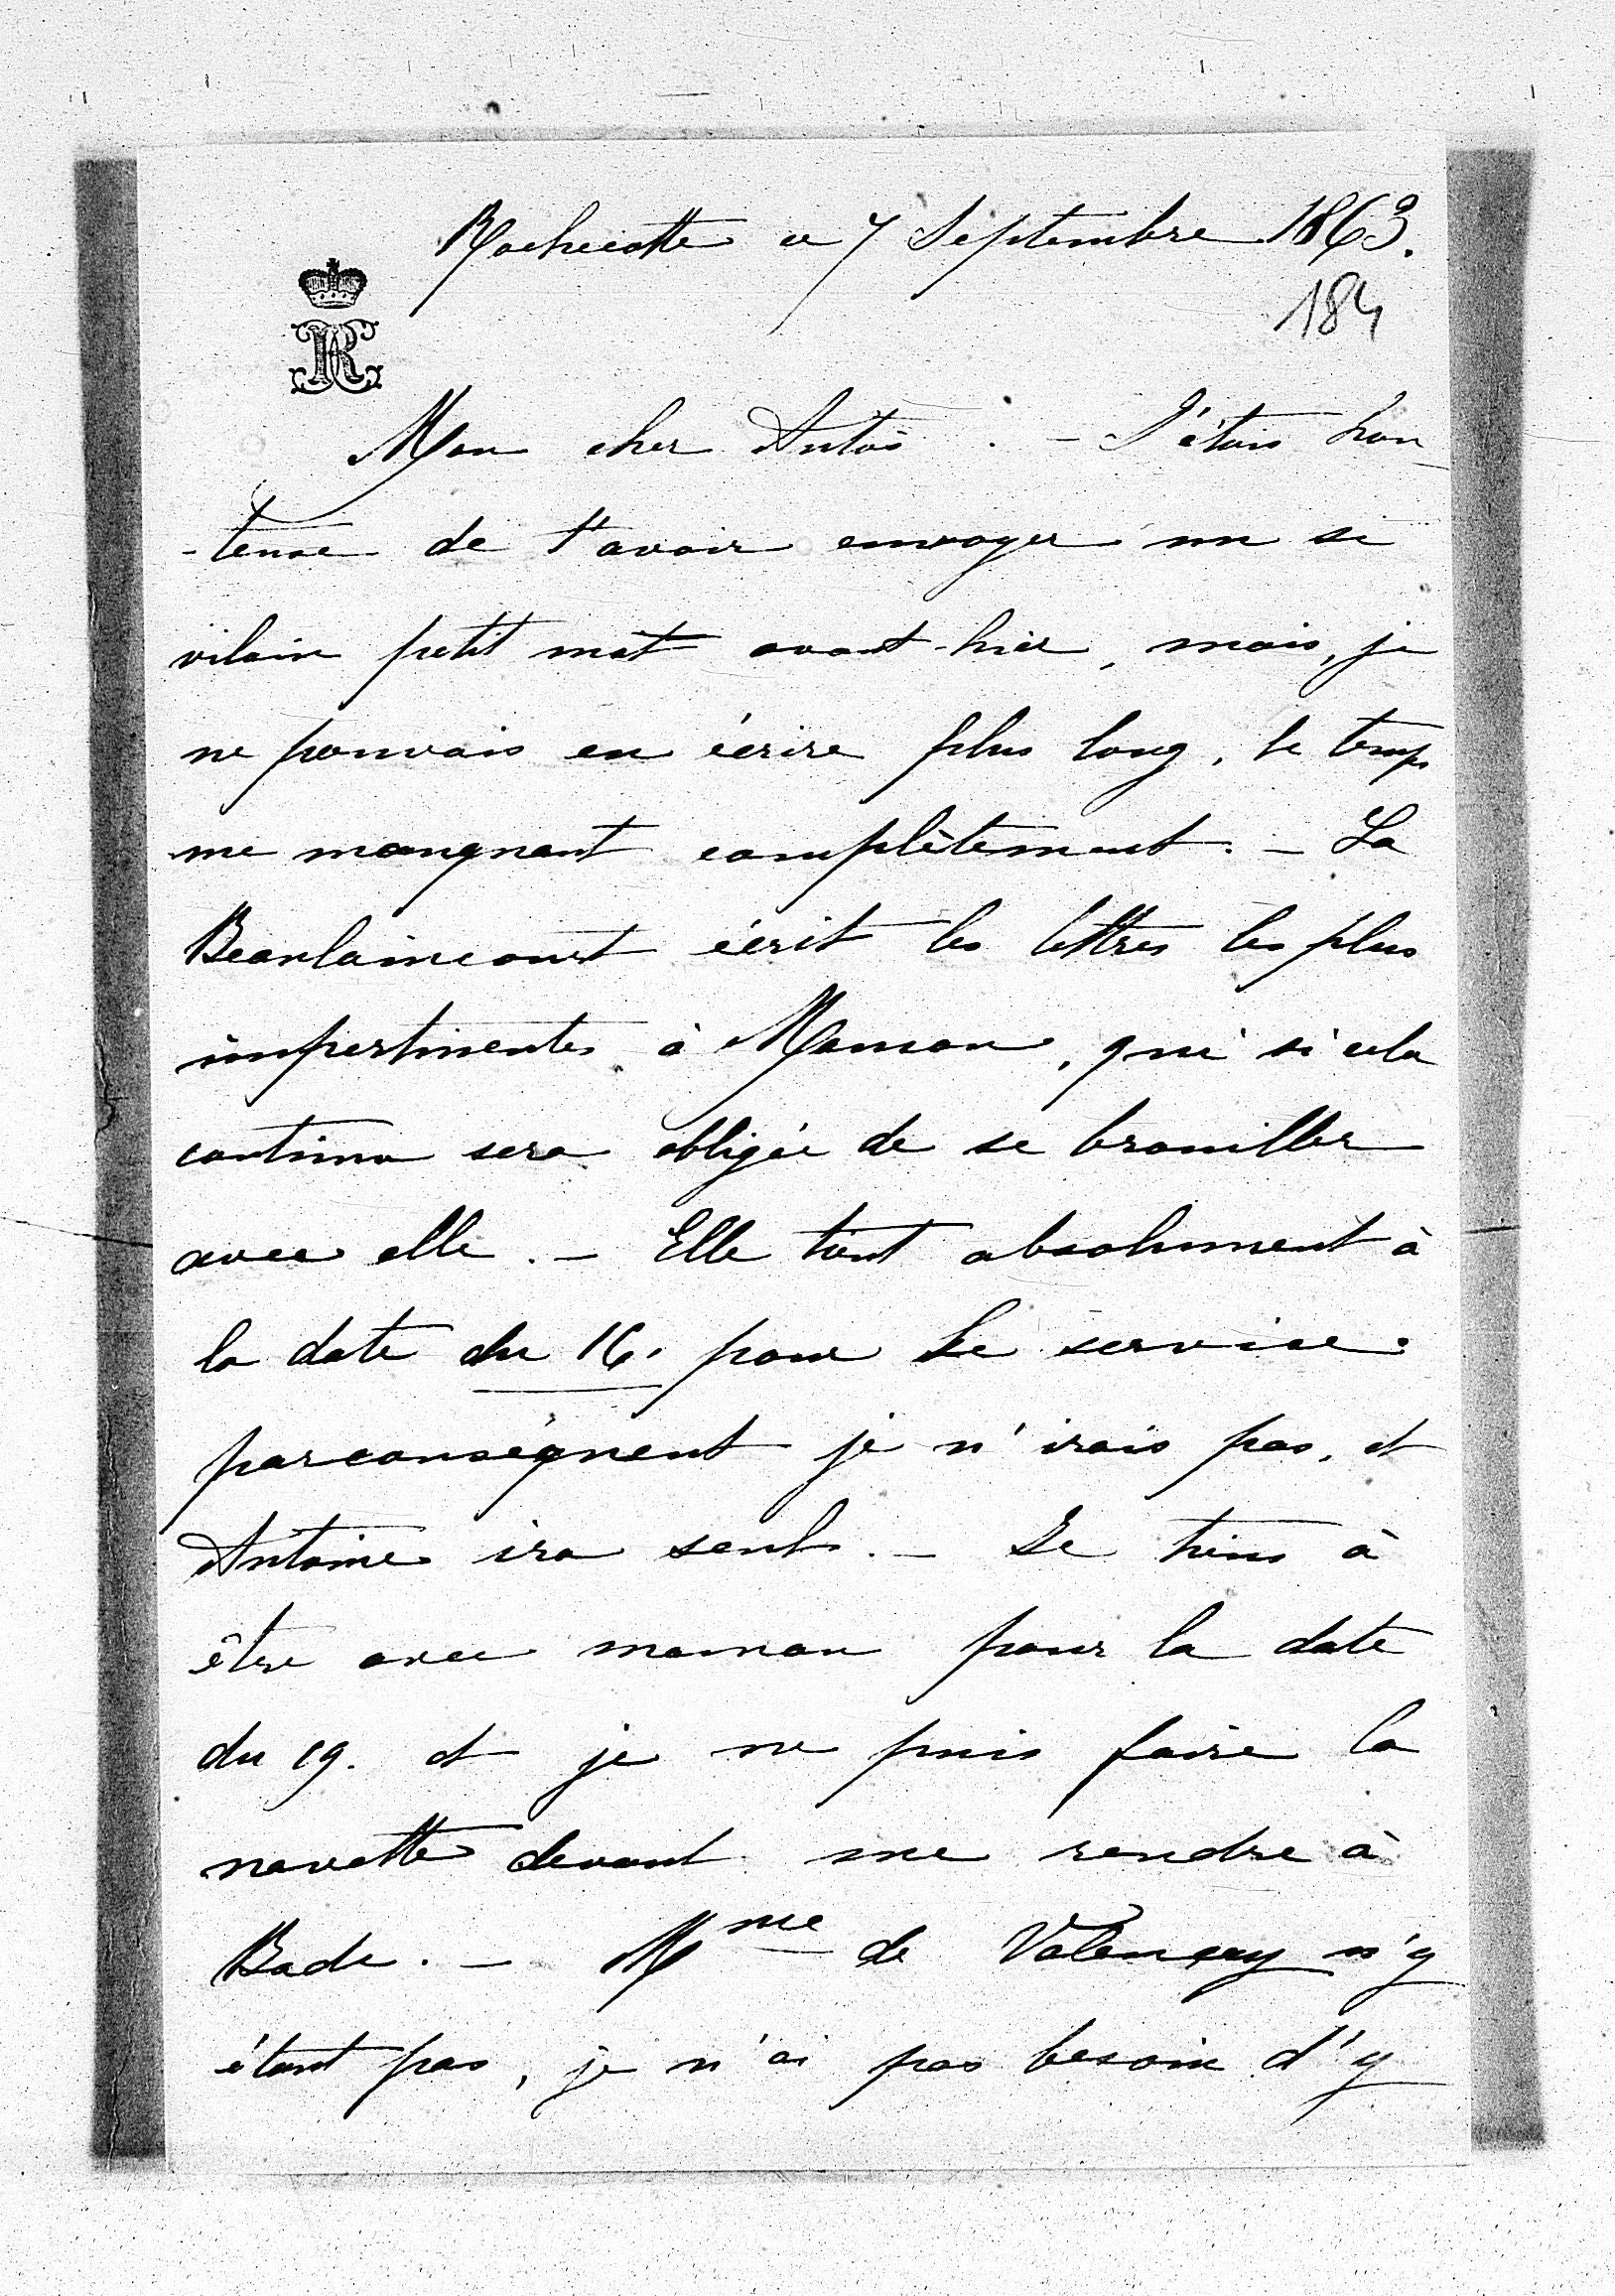 Rochecotte ce 7 Septembre 1863.
184
Mon cher Antos. – J'étais hon
-teuse de t'avoir envoyer un si
vilain petit môt avant-hier, mais, je
ne pouvais en écrire plus long, le temps
me manquant complètement. – La
Beaulaincourt écrit les lettres les plus
impertinentes à Maman, qui si cela
continu sera obligée de se brouiller
avec elle. – Elle tient absolument à
la date du 16. pour le service.
parconséquent je n'irais pas, et
Antoine ira seul. – Je tiens à
être avec maman pour la date
du 19. et je ne puis faire la
navette devant me rendre à
Bade. – Mme de Valençay n'y
étant pas, je n'ai pas besoin d'y